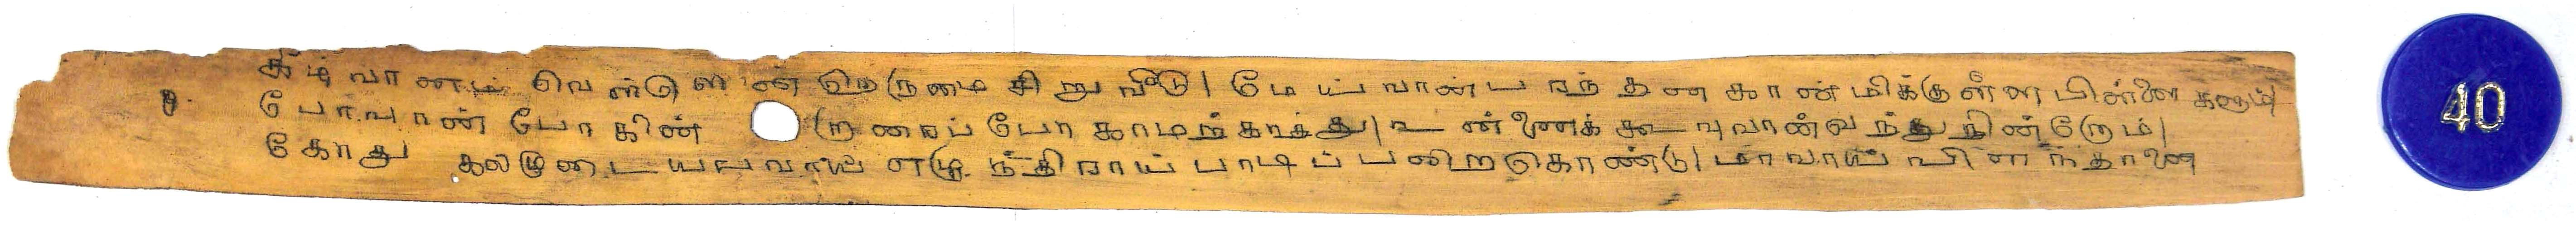 கீழ் வானம் வெள்ளென் றெருமை சிறு வீடு| மேய்வான் பரந்தன காண் மிக்குள்ள பிள்ளைகளும்|
௮ போவான் போகின் றாரைப் போகாமற் காத்து| உன்னைக் கூவுவான் வந்து நின்றோம்|
கோது கலமுடைய பாவாய் எழுந்திராய் பாடிப் பறைகொண்டு| மாவாய் பிளந்தானை
40